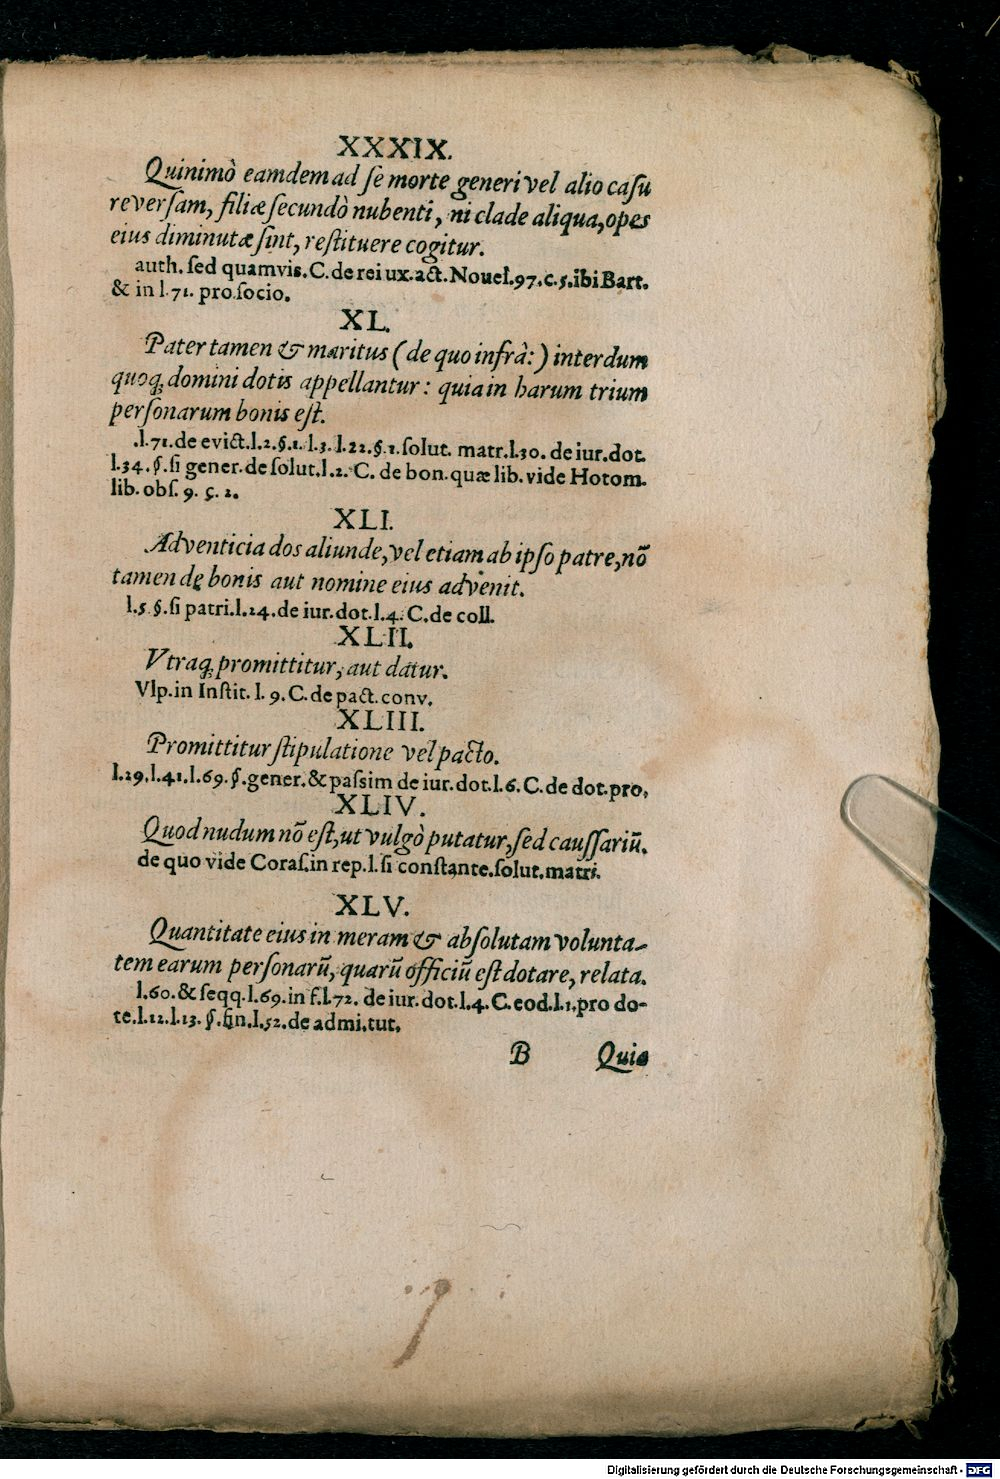 XXXIX.
Quinimò eamdem ad se morte generi vel alio casu
reversam, filiæ secundò nubenti, ni clade aliqua, opes
eius diminutæ sint, restituere cogitur.
auth. sed quamvis. C. de rei ux. act. Novel. 97. c. 5. ibi Bart.
& in l. 71. pro socio.
XL.
Pater tamen & maritus (de quo infrà:) interdum
quoq; domini dotis appellantur: quia in harum trium
personarum bonis est.
.l. 71. de evict. l. 2. §. 1. l. 3. l. 22. §. 1. solut. matr. l. 30. de iur. dot.
l. 34. §. si gener. de solut. l. 2. C. de bon. quæ lib. vide Hotom.
lib. obs. 9. ç. 2.
XLI.
Adventicia dos aliunde, vel etiam ab ipso patre, nō
tamen de bonis aut nomine eius advenit.
l. 5 §. si patri. l. 24. de iur. dot. l. 4. C. de coll.
XLII.
Vtraq; promittitur, aut datur.
Vlp. in Instit. l. 9. C. de pact. conv.
XLIII.
Promittitur stipulatione vel pacto.
l. 29. l. 41. l. 69. §. gener. & passim de iur. dot. l. 6. C. de dot. pro.
XLIV.
Quod nudum nō est, ut vulgò putatur, sed caussariū.
de quo vide Coras. in rep. l. si constante. solut. matri.
XLV.
Quantitate eius in meram & absolutam volunta-
tem earum personarū, quarū officiū est dotare, relata.
l. 60. & seqq. l. 69. in f. l. 72. de iur. dot. l. 4. C. eod. l. 1. pro do-
te. l. 12. l. 13. §. fin. l. 52. de admi. tut.
B Quia
Digitalisierung gefördert durch die Deutsche Forschungsgemeinschaft - DFG